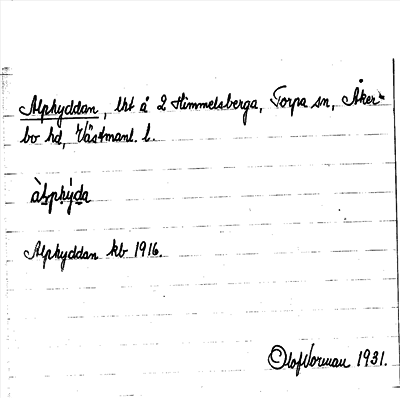 Alphyddan, lht å 2 Himmelsberga, Torpa sn, Åker-
bo hd, Västmanl. l.
àlphýda
Alphyddan kb 1916.
Olof Norman 1931.